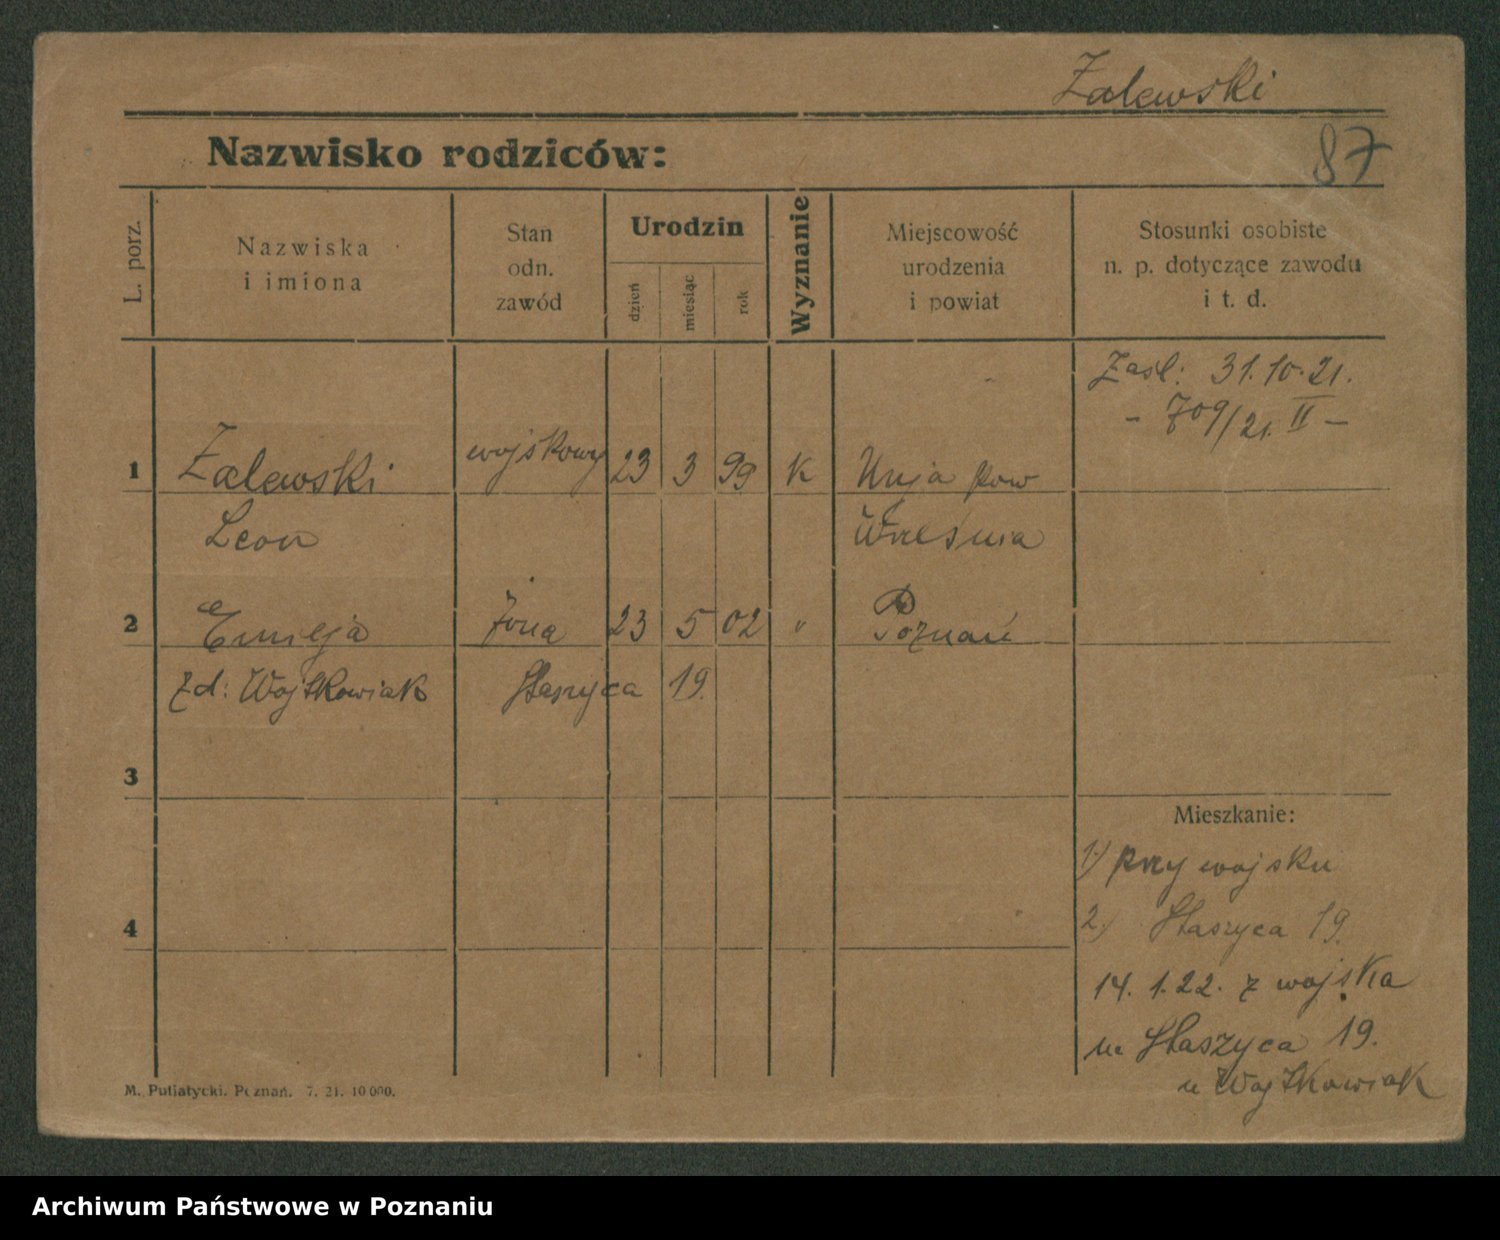 Zalewski
87
Nazwisko rodziców:
L. porz.
Nazwiska
i imiona
Stan
odn.
zawód
Urodzin
dzień
miesiąc
rok
Wyznanie
Miejscowość
urodzenia
i powiat
Stosunki osobiste
n. p. dotyczące zawodu
i t. d.
Zasl: 31.10.21.
- 709/21. II -
1 Zalewski wojskowy 23 3 99 k Unja pow
Leon Wreśnia
2 Emilja żona 23 5 02 " Poznań
zd: Wojtkowiak Staszyca 19.
3
Mieszkanie:
1) przy wojsku
4
2) Staszyca 19.
14. 1. 22. z wojska
na Staszyca 19.
u Wojtkowiak
M. Putiatycki. Poznań. 7. 21. 10 000.
Archiwum Państwowe w Poznaniu